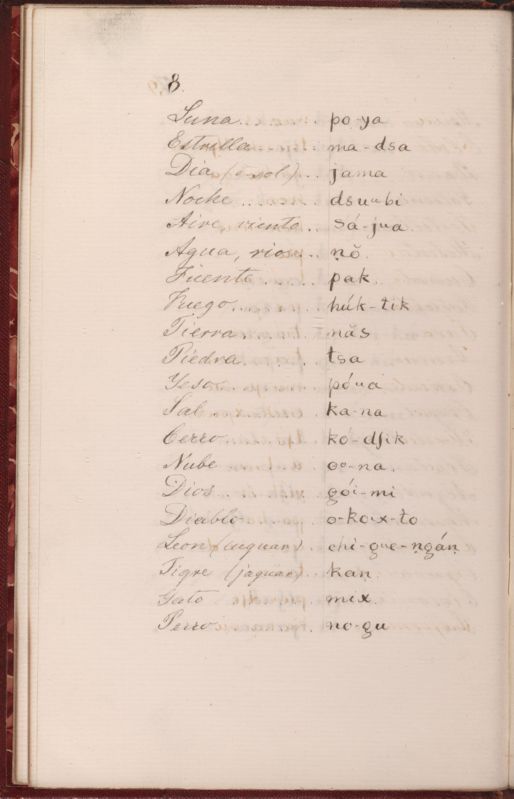 8.
Luna.......... po-ya
Estrella........ ma-dsa
Dia (ó sol)... jama
Noche........ dsuᵘbi
Aire, viento... sá-jua
Agua, rios... ṇŏ
Fuente...... pak.
Fuego....... húk-tik
Tierra........ năs
Piedra...... tsa
Yeso........ póua
Sal......... ka-na
Cerro...... kó-dʃik
Nube....... oᵒ-na.
Dios........ gói-mi
Diablo...... o-koix-to
Leon (cuguar) chi-gue-ṇgáṇ
Tigre (jaguar).. kaṇ
Gato....... mix
Perro....... no-gu